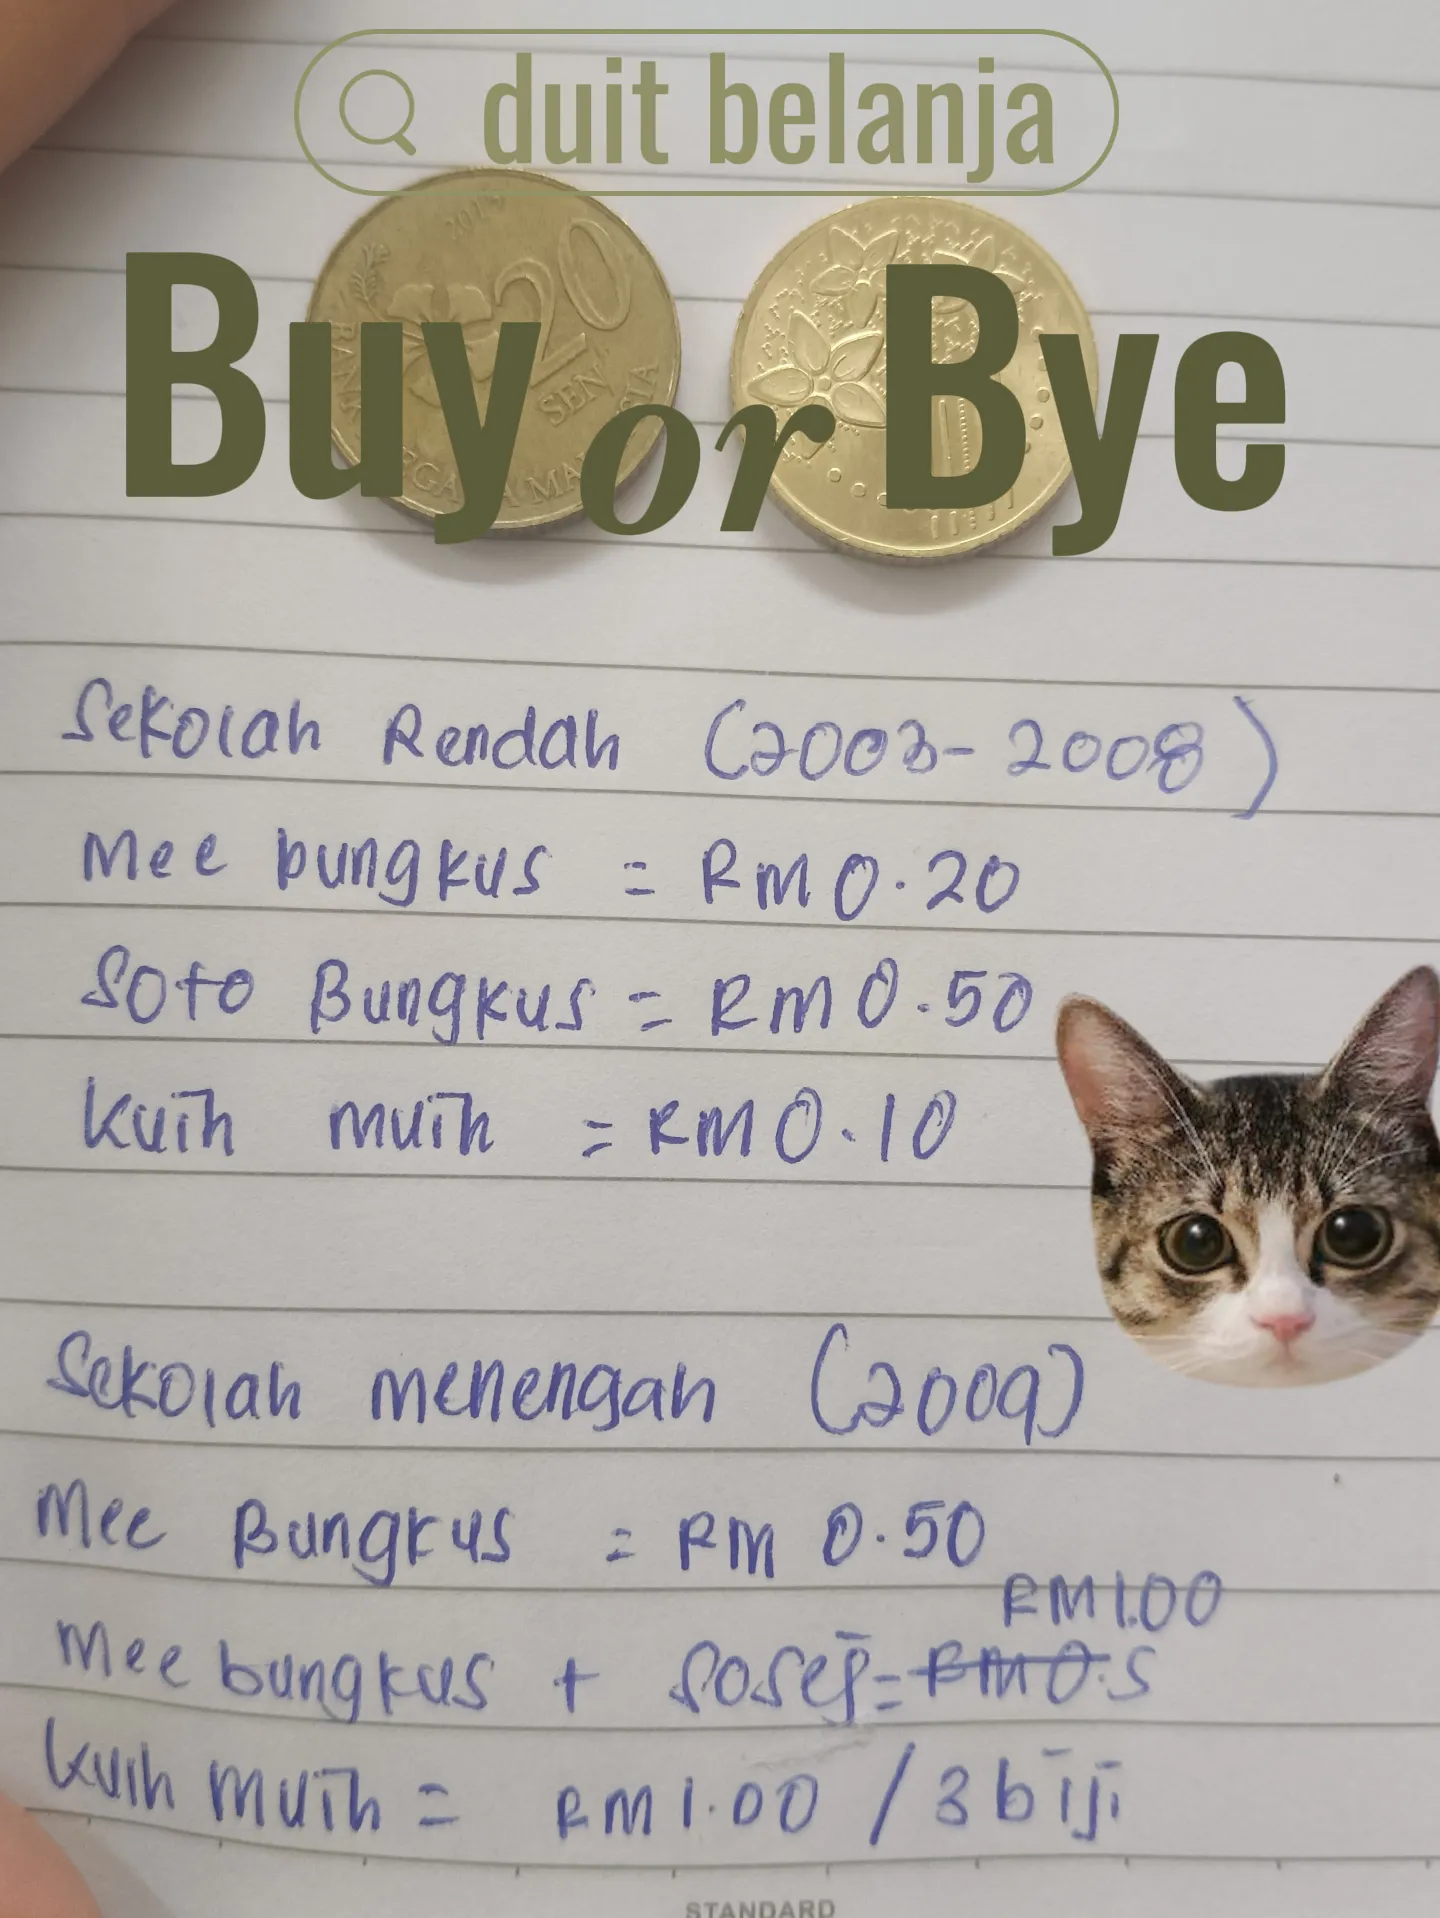 duit belanja
2013
20
SEN
Buy or Bye
Sekolah Rendah (2003-2008)
Mee bungkus = RM0.20
Soto Bungkus = RM0.50
Kuih muih = RM0.10
Sekolah menengah (2009)
Mee Bungkus = RM 0.50
RM1.00
Mee bungkus + sosej= RM0.5
Kuih muih = RM1.00 / 3 biji
STANDARD